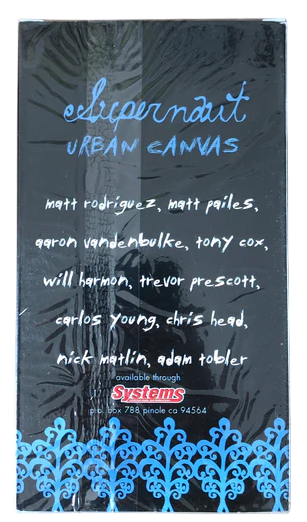 Supernaut
URBAN CANVAS
matt rodriguez, matt pailes,
aaron vandenbulke, tony cox,
will harmon, trevor prescott,
carlos young, chris head,
nick matlin, adam tobler
available through
Systems
p.o. box 788 pinole ca 94564